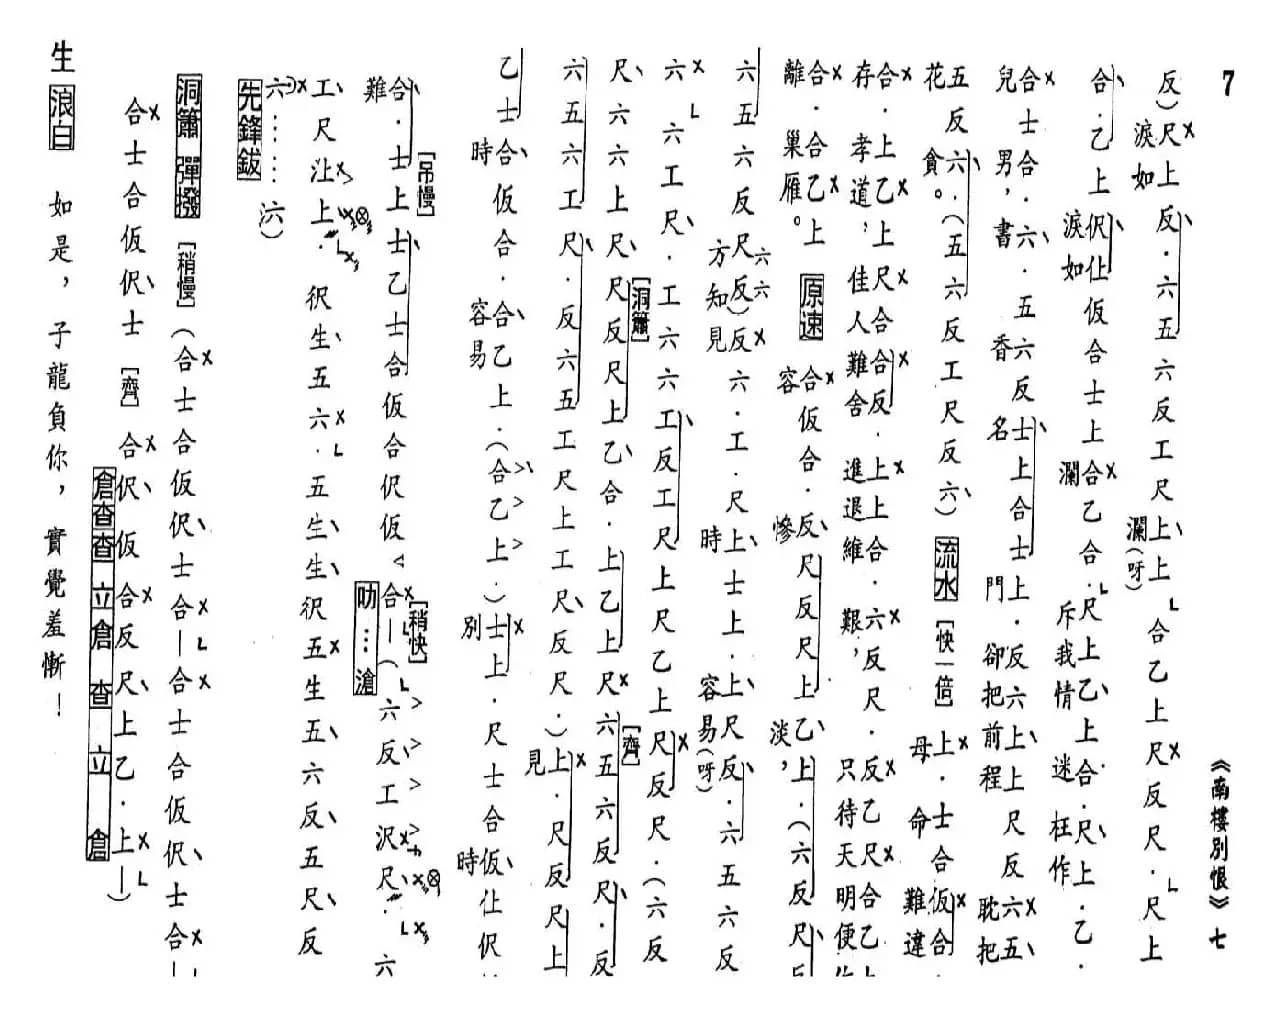 7 《南樓別恨》七
反）尺上反．六五六反工尺上上合乙上尺反尺．尺上
淚如 瀾（呀）
合．乙上伬仩仮合士上合乙合．尺上乙上合．尺上．乙．
淚如 瀾 斥我情 迷 枉作
合士合．六．五六反士上合士上．反六上上尺反六五
兒 男，書 香 名 門 卻把前程 耽把
五反六．（五六反工尺反六）流水［快一倍］上．士合仮合
花 貪。 母 命 難違
合．上乙上尺合合反．上上合．六反尺．反乙尺合乙上
存 孝道，佳人難舍 進退維 艱， 只待天明便
合．合乙上 原速 合仮合．反尺反尺上乙上．（六反尺反
離 巢雁。 容 慘 淡，
六五六反尺反）反六．工．尺上士上．上尺反．六五六反
六六
方知見 時 容易（呀）
六六工尺．工六六工反工尺上尺乙上尺反尺．（六反
［洞簫］ ［齊］
尺六六上尺尺反尺上乙合．上乙上尺六五六反尺．反
六五六工尺．反六五工尺上工尺反尺．）上．尺反尺上
見
乙士合仮合．合乙上．（合乙上．）士上．尺士合仮仩伬
時 容易 別 時
［吊慢］ ［稍快］
合．士上士乙士合仮合伬仮合—（六反工沢尺．六
難 叻…滄
工尺沚上．伬生五六．五生生伬五生五六反五尺反
六……六）
先鋒鈸
洞簫 彈撥［稍慢］（合士合仮伬士合—合士合仮伬士合—
合士合仮伬士［齊］合伬仮合反尺上乙．上—）
倉查查立倉查立倉
生 浪白 如是，子龍負你，實覺羞慚！